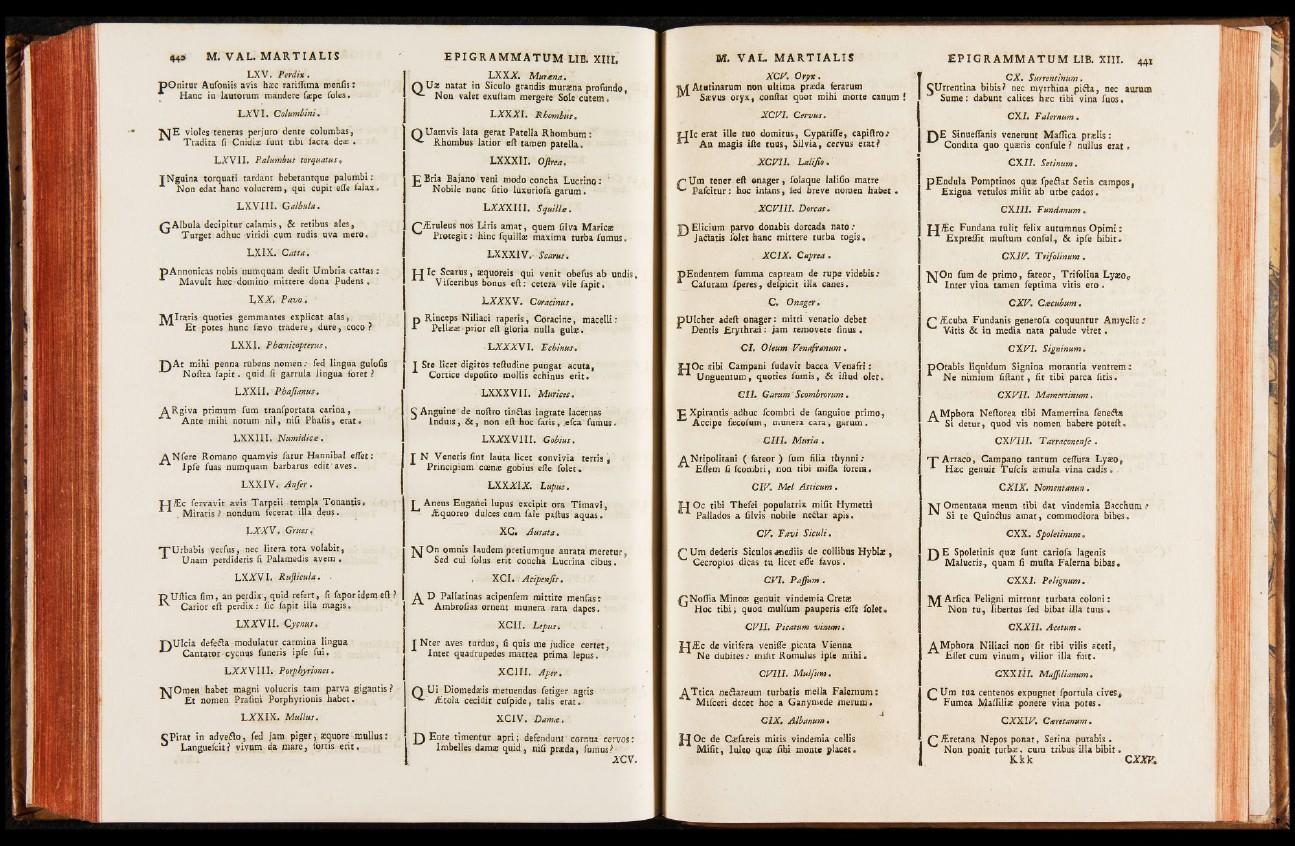 440 M. VAL. MARTIALIS
LXV. Perdix.
POnitur Ausoniis avis hæc rarissima mensis:
Hanc in lautorum mandere sæpe soles.
LXVI. Columbini.
NE violes teneras perjuro dente columbas,
Tradita si Cnidiæ sunt tibi sacra deæ.
LXVII. Palumbus torquatus.
INguina torquati tardant hebetantque palumbi:
Non edat hanc volucrem, qui cupit esse salax.
LXVIII. Galbula.
GAlbula decipitur calamis, & retibus ales,
Turget adhuc viridi cum rudis uva mero.
LXIX. Catta.
PAnnonicas nobis numquam dedit Umbria cattas:
Mavult hæc domino mittere dona Pudens.
LXX. Pavo.
MIraris quoties gemmantes explicat alas,
Et potes hunc sævo tradere, dure, coco?
LXXI. Phœnicopterus.
DAt mihi penna rubens nomen: sed lingua gulosis
Nostra sapit. quid si garrula lingua foret?
LXXII. Phasianus.
ARgiva primum sum transportata carina,
Ante mihi notum nil, nisi Phasis, erat.
LXXIII. Numidicæ.
ANsere Romano quamvis satur Hannibal esset:
Ipse suas numquam barbarus edit aves.
LXXIV. Anser.
HÆc servavit avis Tarpeii templa Tonantis.
Miraris? nondum fecerat illa deus.
LXXV. Grues.
TUrbabis versus, nec litera tota volabit,
Unam perdideris si Palamedis avem.
LXXVI. Rusticula.
RUstica sim, an perdix, quid refert, si sapor idem est?
Carior est perdix: sic sapit illa magis.
LXXVII. Cycnus.
DUlcia defecta modulatur carmina lingua
Cantator cycnus funeris ipse sui.
LXXVIII. Porphyriones.
NOmen habet magni volucris tam parva gigantis?
Et nomen Prasini Porphyrionis habet.
LXXIX. Mullus.
SPirat in advecto, sed jam piger, æquore mullus:
Languescit? vivum da mare, fortis erit.
EPIGRAMMATUM LIB. XIII.
LXXX. Muræna.
QUæ natat in Siculo grandis muræna profundo,
Non valet exustam mergere Sole cutem.
LXXXI. Rhombus.
QUamvis lata gerat Patella Rhombum:
Rhombus latior est tamen patella.
LXXXII. Ostrea.
EBria Bajano veni modo concha Lucrino:
Nobile nunc sitio luxuriosa garum.
LXXXIII. Squillæ.
CÆruleus nos Liris amat, quem silva Maricæ
Protegit: hinc squillæ maxima turba sumus.
LXXXIV. Scarus.
HIc Scarus, æquoreis qui venit obesus ab undis,
Visceribus bonus est: cetera vile sapit.
LXXXV. Coracinus.
PRinceps Niliaci raperis, Coracine, macelli:
Pellææ prior est gloria nulla gulæ.
LXXXVI. Echinus.
ISte licet digitos testudine pungat acuta,
Cortice deposito mollis echinus erit.
LXXXVII. Murices.
SAnguine de nostro tinctas ingrate lacernas
Induis, &, non est hoc satis, esca sumus.
LXXXVIII. Gobius.
IN Venetis sint lauta licet convivia terris,
Principium cœnæ gobius esse solet.
LXXXIX. Lupus.
LAneus Euganei lupus excipit ora Timavi,
Æquoreo dulces cum sale pastus aquas.
XC. Aurata.
NOn omnis laudem pretiumque aurata meretur,
Sed cui solus erit concha Lucrina cibus.
XCI. Acipensis.
AD Pallatinas acipensem mittite mensas:
Ambrosias ornent munera rara dapes.
XCII. Lepus.
INter aves turdus, si quis me judice certet,
Inter quadrupedes mattea prima lepus.
XCIII. Aper.
QUi Diomedæis metuendus setiger agris
Ætola cecidit cuspide, talis erat.
XCIV. Damæ.
DEnte timentur apri; defendunt cornua cervos:
Imbelles damæ quid, nisi præda, sumus?
XCV.
M. VAL. MARTIALIS
XCV. Oryx.
MAtutinarum non ultima præda ferarum
Sævus oryx, constat quot mihi morte canum!
XCVI. Cervus.
HIc erat ille tuo domitus, Cyparisse, capistro:
An magis iste tuus, Silvia, cervus erat?
XCVII. Lalisio.
CUm tener est onager, solaque lalisio matre
Pascitur: hoc infans, sed breve nomen habet.
XCVIII. Dorcas.
DElicium parvo donabis dorcada nato:
Jactatis solet hanc mittere turba togis.
XCIX. Caprea.
PEndentem summa capream de rupe videbis:
Casuram speres, despicit illa canes.
C. Onager.
PUlcher adest onager: mitti venatio debet
Dentis Erythræi: jam removete sinus.
CI. Oleum Venafranum.
HOc tibi Campani sudavit bacca Venafri:
Unguentum, quoties sumis, & istud olet.
CII. Garum Scombrorum.
EXpirantis adhuc scombri de sanguine primo,
Accipe fæcosum, munera cara, garum.
CIII. Muria.
ANtipolitani ( fateor ) sum filia thynni:
Essem si scombri, non tibi missa forem.
CIV. Mel Atticum.
HOc tibi Thesei populatrix misit Hymetti
Pallados a silvis nobile nectar apis.
CV. Favi Siculi.
CUm dederis Siculos mediis de collibus Hyblæ,
Cecropios dicas tu licet esse favos.
CVI. Passum.
GNossia Minoæ genuit vindemia Cretæ
Hoc tibi; quod mulsum pauperis esse solet.
CVII. Picatum vinum.
HÆc de vitifera venisse picata Vienna
Ne dubites: misit Romulus ipse mihi.
CVIII. Mulsum.
ATtica nectareum turbatis mella Falernum:
Misceri decet hoc a Ganymede merum.
CIX. Albanum.
HOc de Cæsareis mitis vindemia cellis
Misit, Iuleo quæ sibi monte placet.
EPIGRAMMATUM LIB. XIII. 441
CX. Surrentinum.
SUrrentina bibis? nec myrrhina picta, nec aurum
Sume: dabunt calices hæc tibi vina suos.
CXI. Falernum.
DE Sinuessanis venerunt Massica prælis:
Condita quo quæris consule? nullus erat.
CXII. Setinum.
PEndula Pomptinos quæ spectat Setia campos,
Exigua vetulos misit ab urbe cados.
CXIII. Fundanum.
HÆc Fundana tulit felix autumnus Opimi:
Expressit mustum consul, & ipse bibit.
CXIV. Trifolinum.
NOn sum de primo, fateor, Trifolina Lyæo,
Inter vina tamen septima vitis ero.
CXV. Cæcubum.
CÆcuba Fundanis generosa coquuntur Amyclis:
Vitis & in media nata palude viret.
CXVI. Signinum.
POtabis liquidum Signina morantia ventrem:
Ne nimium sistant, sit tibi parca sitis.
CXVII. Mamertinum.
AMphora Nestorea tibi Mamertina senecta
Si detur, quod vis nomen habere potest.
CXVIII. Tarraconense.
TArraco, Campano tantum cessura Lyæo,
Hæc genuit Tuscis æmula vina cadis.
CXIX. Nomentanum.
NOmentana meum tibi dat vindemia Bacchum:
Si te Quinctus amat, commodiora bibes.
CXX. Spoletinum.
DE Spoletinis quæ sunt cariosa lagenis
Malueris, quam si musta Falerna bibas.
CXXI. Pelignum.
MArsica Peligni mittunt turbata coloni:
Non tu, libertus sed bibat illa tuus.
CXXII. Acetum.
AMphora Niliaci non sit tibi vilis aceti,
Esset cum vinum, vilior illa fuit.
CXXIII. Massilianum.
CUm tua centenos expugnet sportula cives,
Fumea Massiliæ ponere vina potes.
CXXIV. Cæretanum.
CÆretana Nepos ponat, Setina putabis.
Non ponit turbæ, cum tribus illa bibit.
Kkk CXXV.